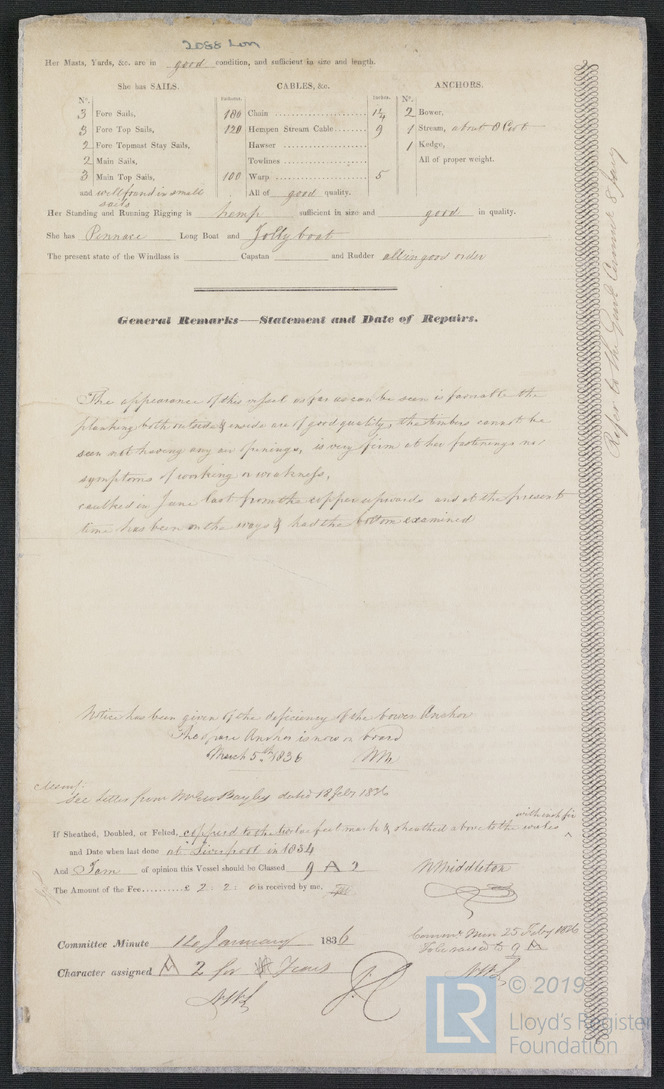 2088 Lon
Her Masts, Yards, &c. are in good condition, and sufficient in size and length.
She has SAILS.
CABLES, &c.
ANCHORS.
No.
3 Fore Sails,
3 Fore Top Sails,
2 Fore Topmast Stay Sails,
2 Main Sails,
3 Main Top Sails,
and well found in small
sails
Fathoms.
Inches.
180 Chain 1 1/4
120 Hempen Stream Cable 9
Hawser
Towlines
100 Warp 5
All of good quality.
No.
2 Bower,
1 Stream, about
1 Kedge,
All of proper weight.
Her Standing and Running Rigging is hemp sufficient in size and good in quality.
She has Pinnace Long Boat and Jolly boat
The present state of the Windlass is Capstan and Rudder all in good order
General Remarks—Statement and Date of Repairs.
The appearance of this vessel as far as can be seen is favorable the
planking both outside & inside are of good quality, the timbers cannot be
seen not having any air openings, is very firm at her fastenings no
symptoms of working or weakness,
caulked in June last from the copper upwards and at the present
time has been on the ways & had the bottom examined
Notice has been given of the deficiency of the bower Anchor
The spare Anchor is now on board
March 5th 1836 WM
See letter from Mr Bayley dated 18 Feby 1836
If Sheathed, Doubled, or Felted, coppered to the twelve feet mark & sheathed above to the wales
with inch fir
and Date when last done at Liverpool in 1834
And I am of opinion this Vessel should be Classed 9 A 2
W Middleton
The Amount of the Fee £ 2 : 2 : 0 is received by me,
Committee Minute 14 January 1836
Committee Min 25 Feby 1836
To be raised to 9 A
Character assigned A 2 for Years
Refer to the 8 Jany
LR
© 2019
Lloyd's Register
Foundation